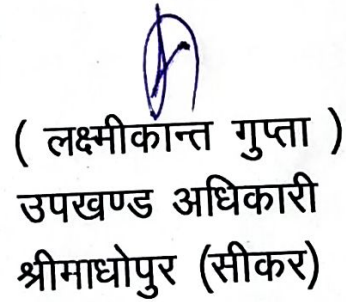 ( लक्ष्मीकान्त गुप्ता )
उपखण्ड अधिकारी
श्रीमाधोपुर (सीकर)